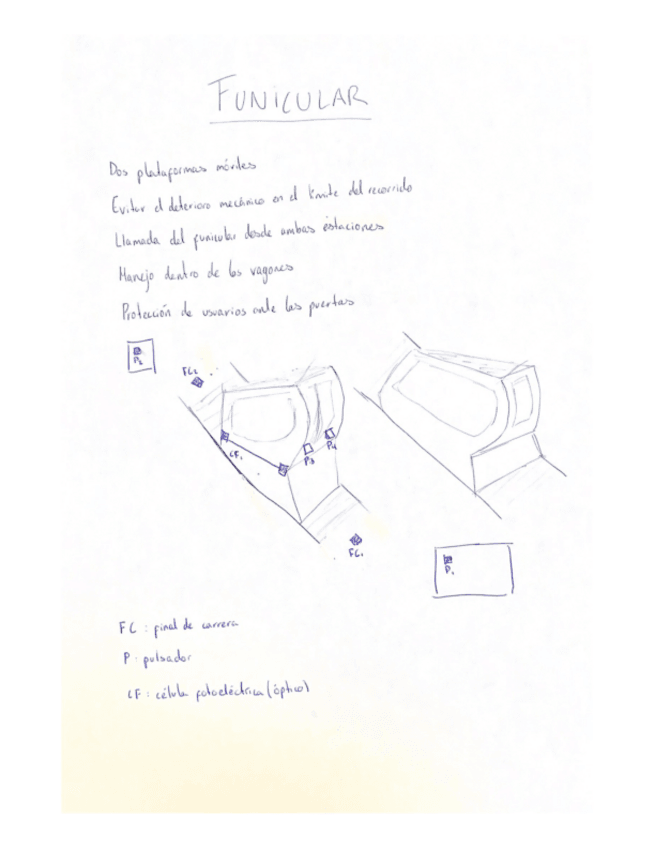 FUNICULAR
Dos plataformas móviles
Evitar el deterioro mecánico en el límite del recorrido
Llamada del funicular desde ambas estaciones
Manejo dentro de los vagones
Protección de usuarios ante las puertas
P2
FC2
CF1
P3
P4
FC1
P1
FC : final de carrera
P : pulsador
CF : célula fotoeléctrica (óptico)